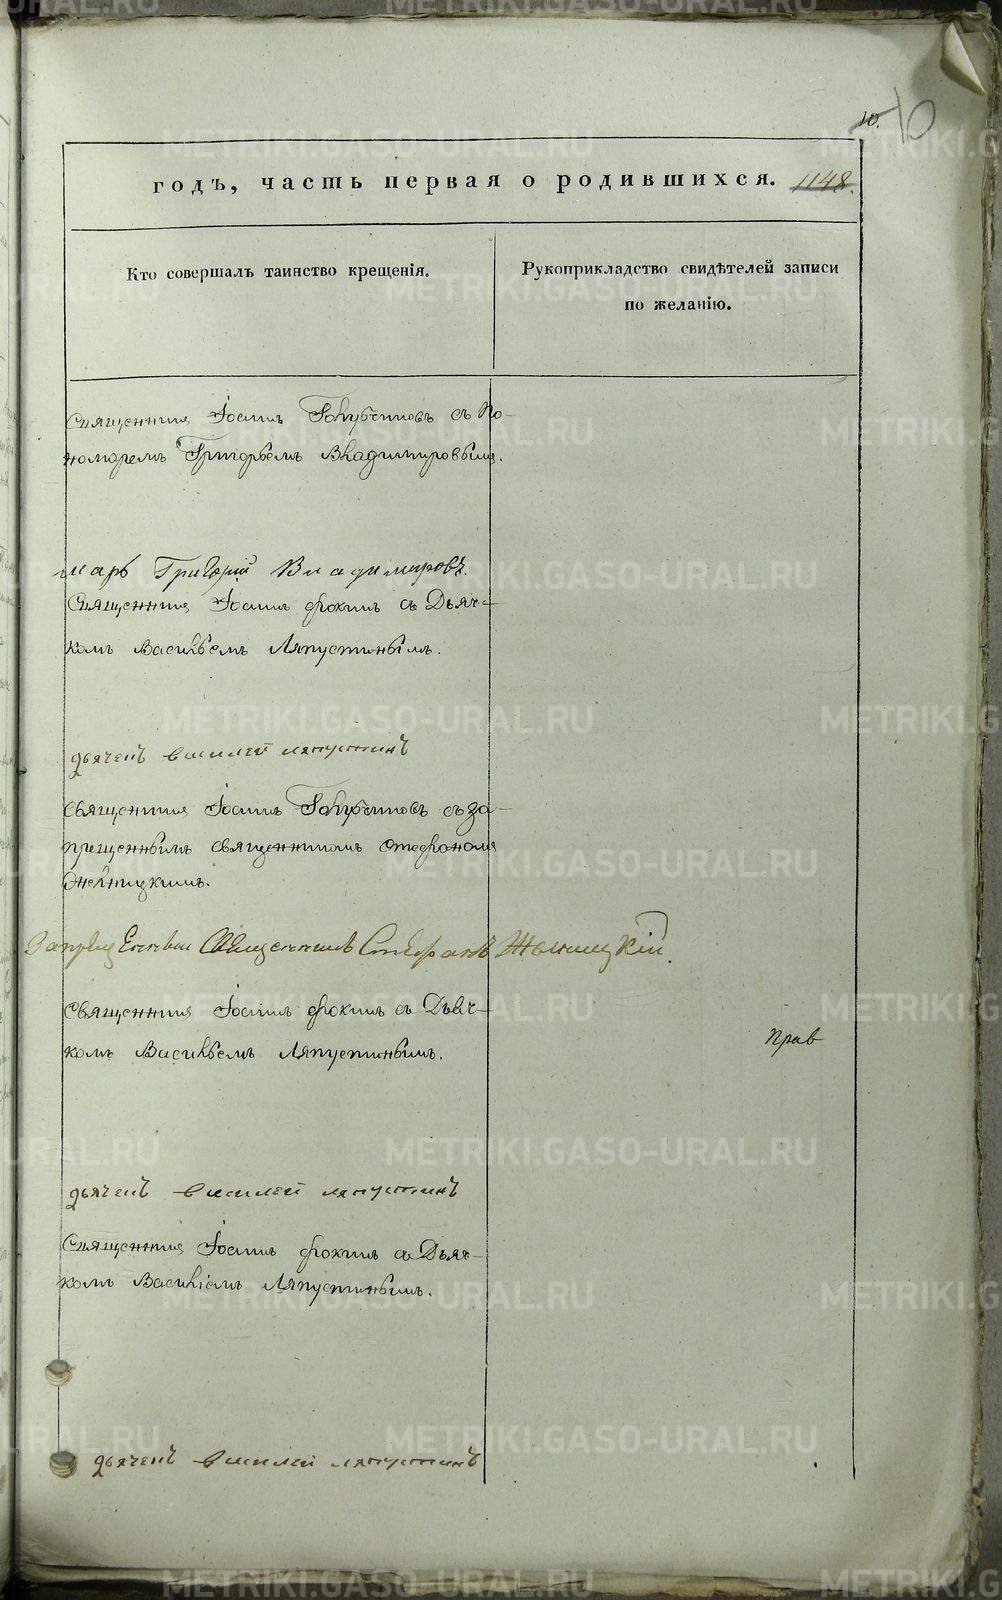 10.
годъ, часть первая о родившихся. 1148.
Кто совершалъ таинство крещенія.
Рукоприкладство свидѣтелей записи
по желанію.
Священникъ Іоаннъ Голубчиковъ съ по-
номаремъ Григорьемъ Владимировымъ.
марь Григорій Владимировъ.
Священникъ Іоаннъ Фокинъ съ Дьяч-
комъ Васильемъ Ляпустинымъ.
дьячекъ василей ляпустинъ
Священникъ Іоаннъ Голубчиковъ съ за-
прещеннымъ священникомъ Стефаномъ
Запрещенный Священникъ Стефанъ
Священникъ Іоаннъ Фокинъ съ Дьяч-
комъ Васильемъ Ляпустинымъ.
прав
дьячекъ василей ляпустинъ
Священникъ Іоаннъ Фокинъ съ Дьяч-
комъ Василіемъ Ляпустинымъ.
дьячекъ василей ляпустинъ
METRIKI.GASO-URAL.RU